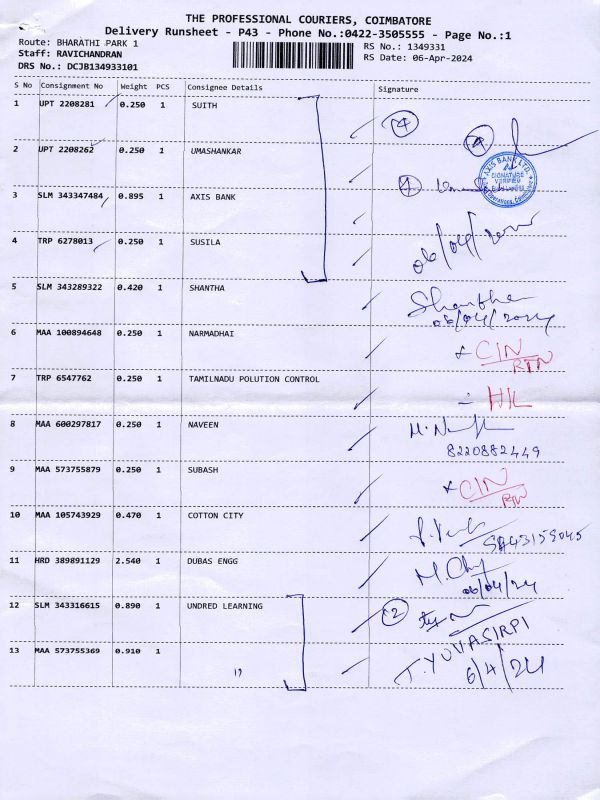 THE PROFESSIONAL COURIERS, COIMBATORE
Delivery Runsheet - P43 - Phone No.:0422-3505555 - Page No.:1
Route: BHARATHI PARK 1 RS No.: 1349331
Staff: RAVICHANDRAN RS Date: 06-Apr-2024
DRS No.: DCJB134933101
S No Consignment No Weight PCS Consignee Details Signature
1 UPT 2208281 0.250 1 SUITH 4
2 UPT 2208262 0.250 1 UMASHANKAR 4
AXIS BANK LTD. SIGNATURE VERIFIED
3 SLM 343347484 0.895 1 AXIS BANK
4 TRP 6278013 0.250 1 SUSILA 06/04/2024
5 SLM 343289322 0.420 1 SHANTHA Shantha
06/04/2024
6 MAA 100894648 0.250 1 NARMADHAI x CIN
RTN
7 TRP 6547762 0.250 1 TAMILNADU POLUTION CONTROL
8 MAA 600297817 0.250 1 NAVEEN
8220882449
9 MAA 573755879 0.250 1 SUBASH x CIN
RTN
10 MAA 105743929 0.470 1 COTTON CITY
11 HRD 389891129 2.540 1 DUBAS ENGG
06/04/24
12 SLM 343316615 0.890 1 UNDRED LEARNING 2
13 MAA 573755369 0.910 1 " T. YUVASIRPI
6/4/24